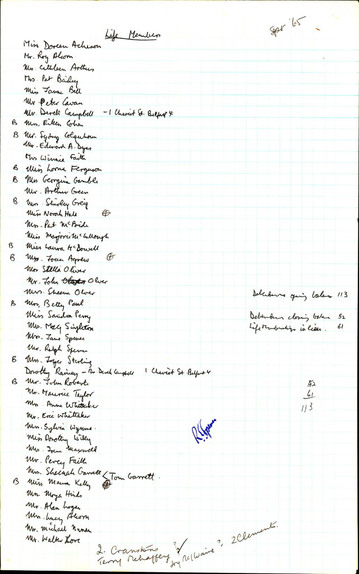 Life Members
Sept '65
Miss Doreen Acheson
Mr. Roy Ahorn
Mrs. Cathleen Arthurs
Mrs. Pat Bailey
Miss Bell
Mr Peter Cavan
Mr. Derek Campbell - 1 Cheviot St. Belfast 4
B Mrs. Eileen Cohen
B Mr. Sydney Colquhoun
Mr. Edward A. Dyas
Mrs Winnie Faith
B Miss Lorna Ferguson
B Mrs Georgina Gamble
Mr. Arthur Green
B Mrs Shirley Greig
Miss Norah Hale
Mrs. Pat McBride
Miss Marjorie McCullough
B Miss Laura McDowell
B Mrs. Joan Agnew
Mrs Stella Oliver
Mr. John Oliver
Mrs. Sheena Oliver
Debentures opening balance 113
B Mrs. Betty Paul
Miss Sandra Perry
Debentures closing balance 52
Mrs. Meg Singleton
Life Memberships in lieu. 61
Mrs. Jane Spence
Mr. Ralph Spence
B Mrs. Joyce Sterling
Dorothy Rainey - Derek Campbell 1 Cheviot St. Belfast 4
B Mr. John Roberts
52
Mr. Maurice Taylor
61
Mrs Anne Whittaker
113
Mr. Eric Whittaker
Mrs. Sylvia
Miss Dorothy Willey
Mr. Tom Maxwell
Mr. Percy Faith
Mrs. Sheelagh Garrett < Tom Garrett.
B Miss Maura Kelly
Mrs Moya Hinds
Mr. Alan Logan
Mrs. Lucy Ahorn
Mr. Michael
Mr. Walter Love
2. Cranstons
Terry Mehaffey ? 2 Clements.